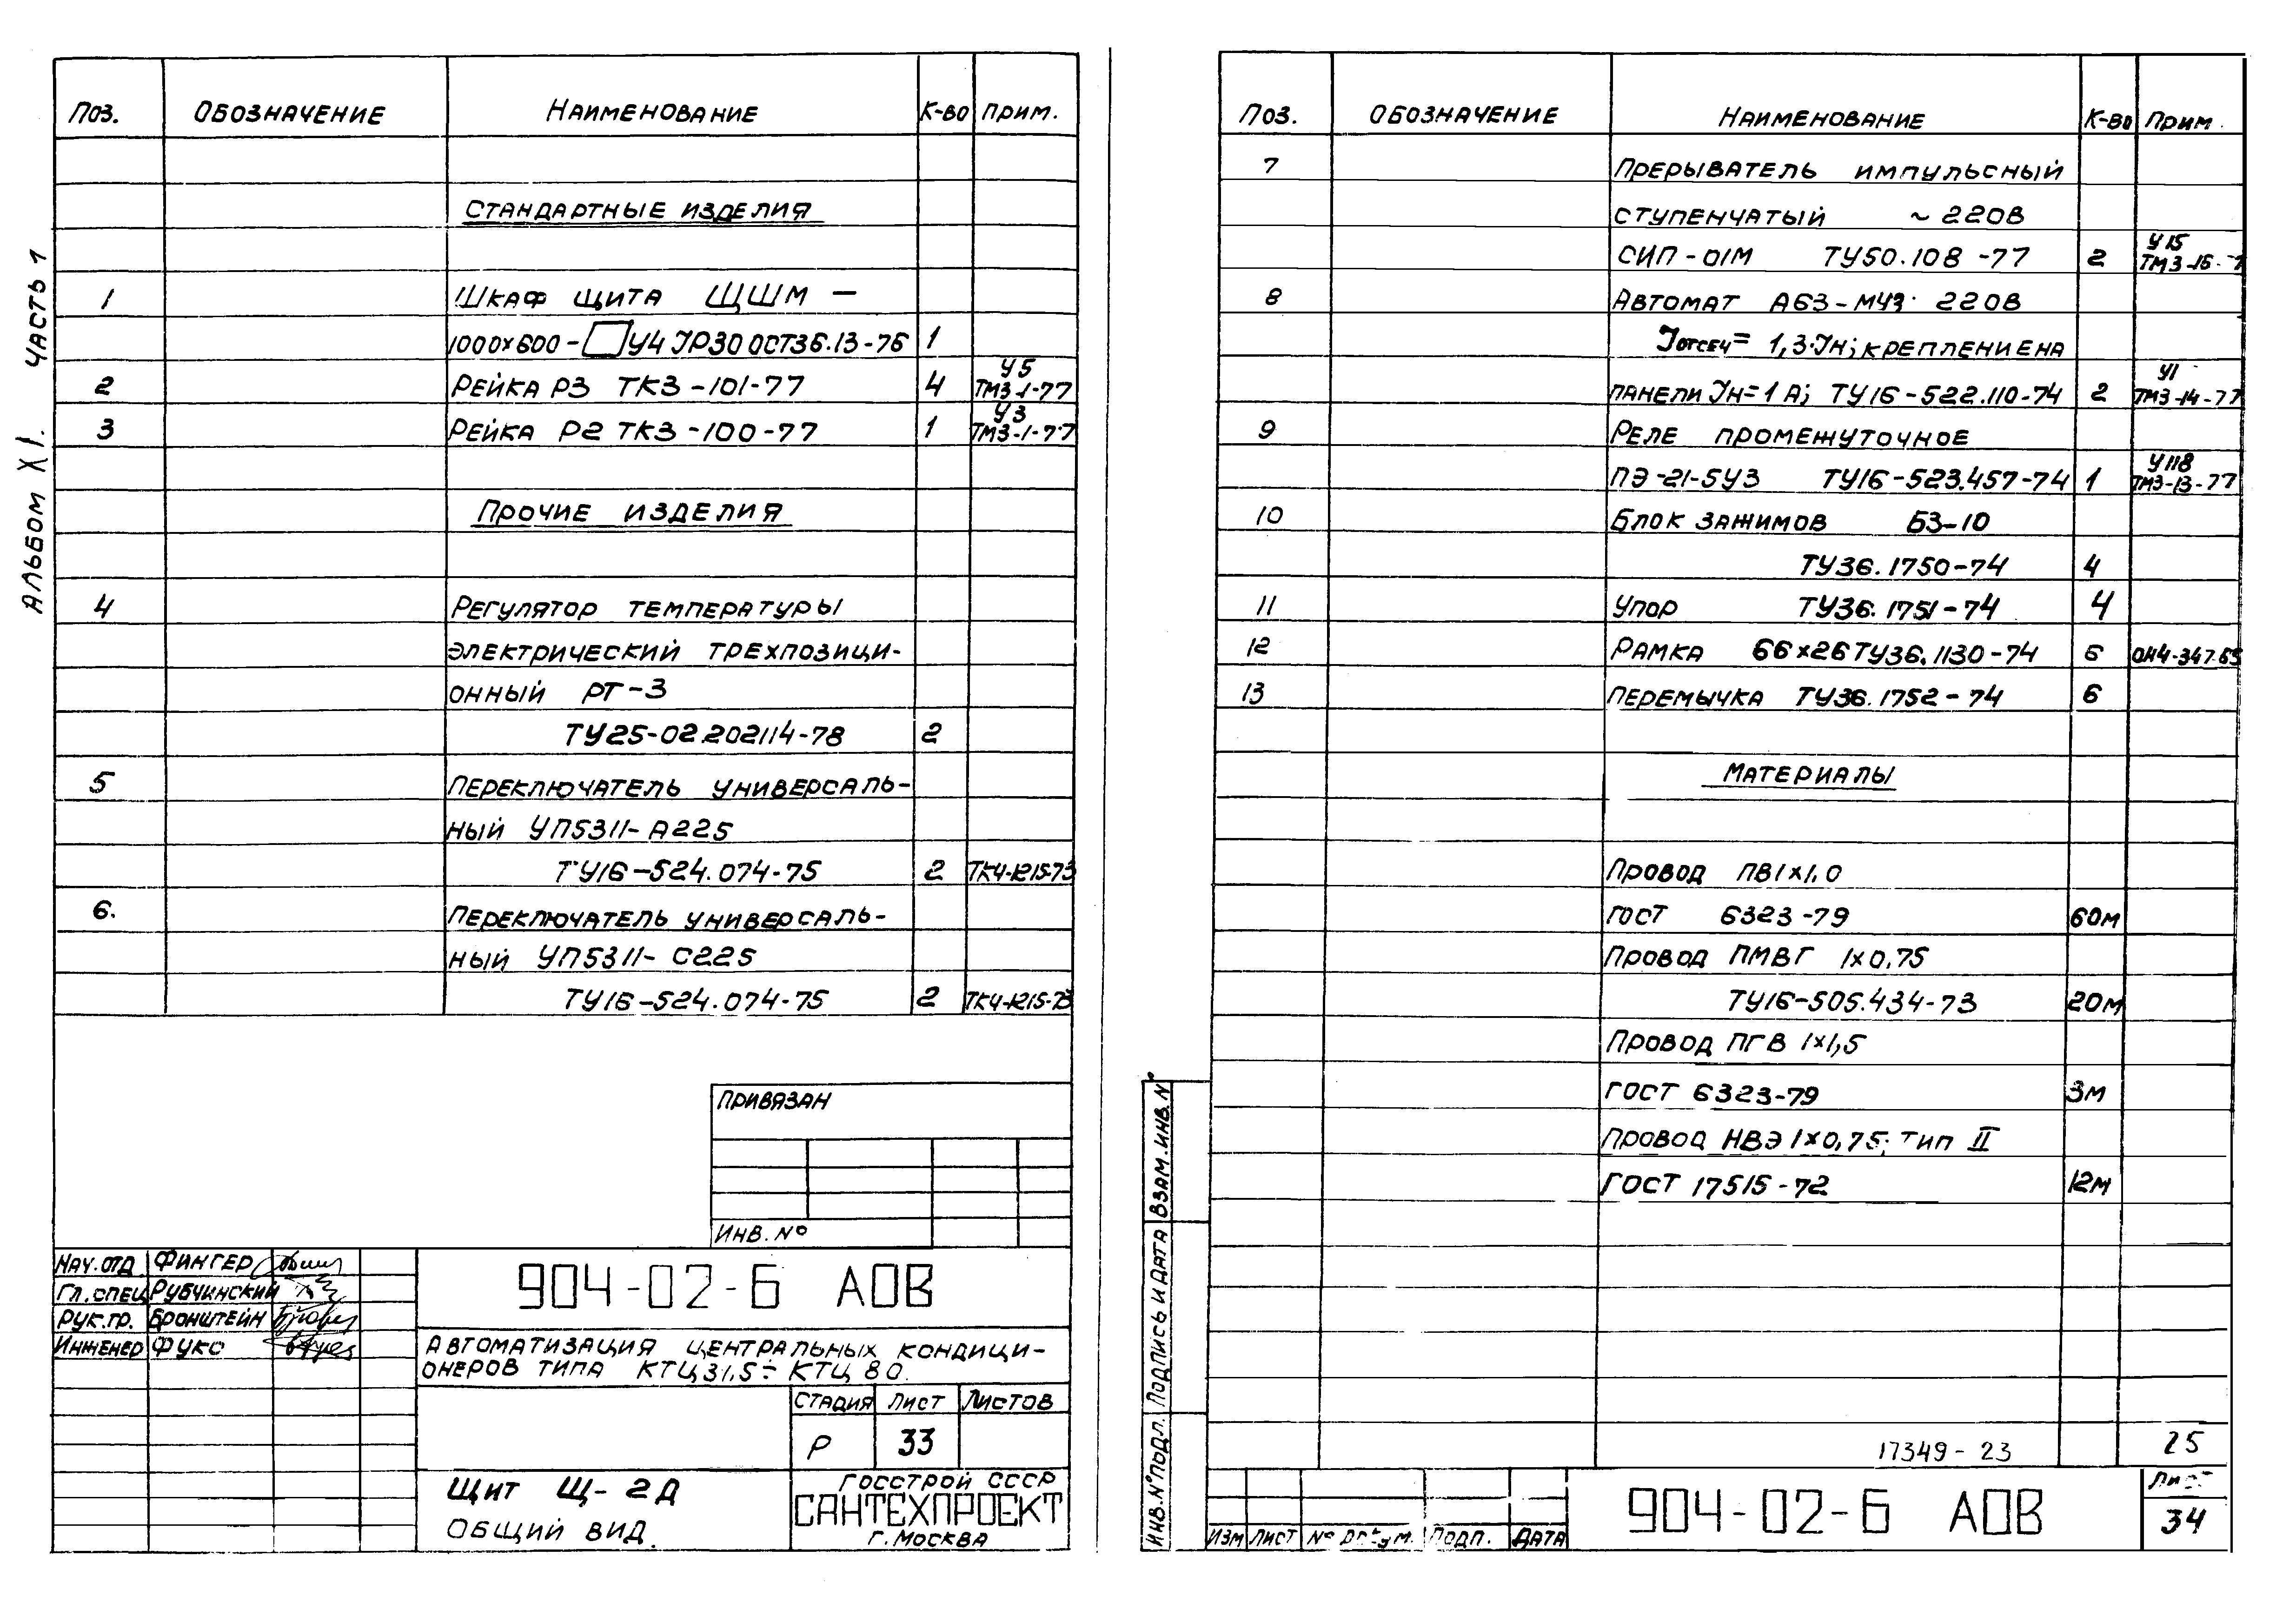 Альбом XI. Часть 1
Поз. Обозначение Наименование К-во Прим.
Стандартные изделия
1 Шкаф щита ЩШМ –
1000×600-□У4 JP30 ОСТ36.13-76 1
2 Рейка Р3 ТК3-101-77 4 У5 ТМ3-1-77
3 Рейка Р2 ТК3-100-77 1 У3 ТМ3-1-77
Прочие изделия
4 Регулятор температуры
электрический трехпозици-
онный РТ-3
ТУ25-02.202114-78 2
5 Переключатель универсаль-
ный УП5311-А225
ТУ16-524.074-75 2 ТК4-1215-73
6. Переключатель универсаль-
ный УП5311-С225
ТУ16-524.074-75 2 ТК4-1215-73
Привязан
Инв. №
Нач. отд. Фингер
Гл. спец. Рубчинский
Рук. гр. Бронштейн
Инженер Фукс
904-02-6 АОВ
Автоматизация центральных кондици-
онеров типа КТЦ 31,5 ÷ КТЦ 80.
Стадия Лист Листов
Р 33
Щит Щ-2Д
Общий вид.
Госстрой СССР
САНТЕХПРОЕКТ
г. Москва
Поз. Обозначение Наименование К-во Прим.
7 Прерыватель импульсный
ступенчатый ~ 220В
СИП-01М ТУ50.108-77 2 У15
8 Автомат А63-МУЗ 220В
Jотсеч= 1,3·Jн; креплениена
панели Jн=1А; ТУ16-522.110-74 2 У1 ТМ3-14-77
9 Реле промежуточное
ПЭ-21-5У3 ТУ16-523.457-74 1 У118 ТМ3-13-77
10 Блок зажимов БЗ-10
ТУ36.1750-74 4
11 Упор ТУ36.1751-74 4
12 Рамка 66×26 ТУ36.1130-74 6
13 Перемычка ТУ36.1752-74 6
Материалы
Провод ПВ1×1,0
ГОСТ 6323-79 60м
Провод ПМВГ 1×0,75
ТУ16-505.434-73 20м
Провод ПГВ 1×1,5
ГОСТ 6323-79 3м
Провод НВЭ 1×0,75; тип II
ГОСТ 17515-72 12м
17349-23 25
904-02-6 АОВ
Лист
34
Изм Лист № докум. Подп. Дата
Инв. № подл. Подпись и дата Взам. инв. №